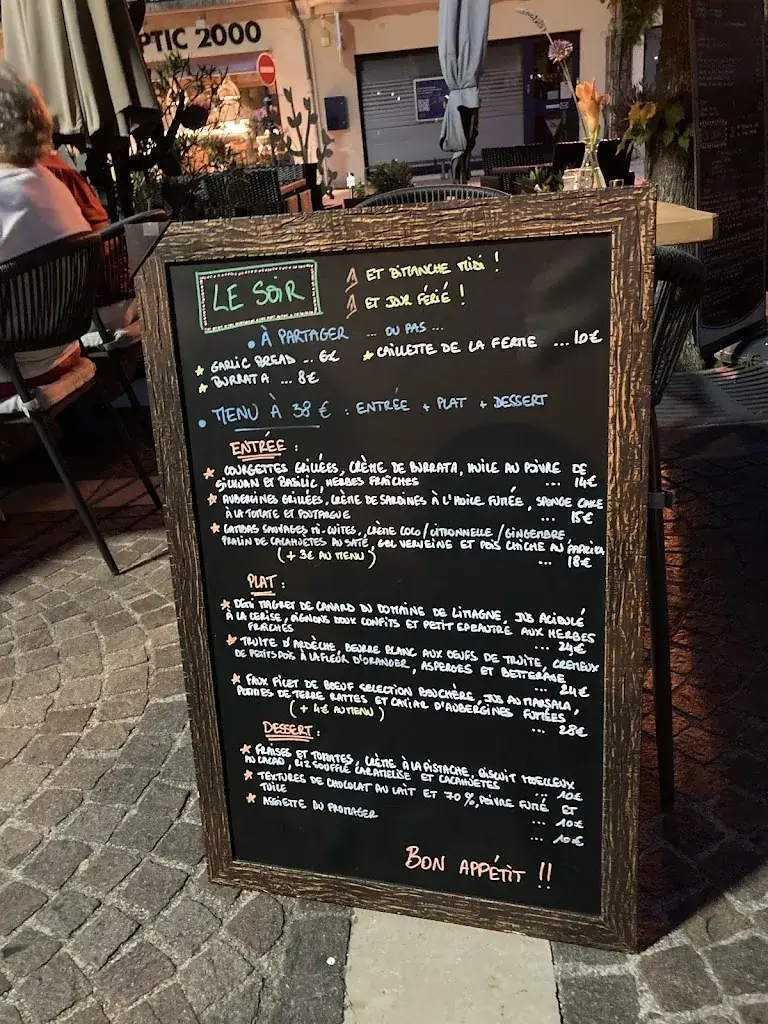 PTIC 2000
LE SOIR
ET DIMANCHE MIDI !
ET JOUR FÉRIÉ !
• À PARTAGER ... OU PAS ...
GARLIC BREAD ... 6€
CAILLETTE DE LA FERME ... 10€
BURRATA ... 8€
• MENU À 38 € : ENTRÉE + PLAT + DESSERT
ENTRÉE :
COURGETTES GRILLÉES, CRÈME DE BURRATA, HUILE AU POIVRE DE
SICHUAN ET BASILIC, HERBES FRAÎCHES ... 14€
AUBERGINES GRILLÉES, CRÈME DE SARDINES À L'HUILE FUMÉE, SPONGE CAKE
À LA TOMATE ET POUTARGUE ... 15€
GAMBAS SAUVAGES MI-CUITES, CRÈME COCO/CITRONNELLE/GINGEMBRE,
PRALIN DE CACAHUÈTES AU SATÉ, GEL VERVEINE ET POIS CHICHE AU PAPRIKA
(+ 3€ AU MENU) ... 18€
PLAT :
DEMI MAGRET DE CANARD DU DOMAINE DE LIMAGNE, JUS ACIDULÉ
À LA CERISE, OIGNONS DOUX CONFITS ET PETIT EPEAUTRE AUX HERBES
FRAÎCHES ... 24€
TRUITE D'ARDÈCHE, BEURRE BLANC AUX OEUFS DE TRUITE, CREMEUX
DE PETITS POIS À LA FLEUR D'ORANGER, ASPERGES ET BETTERAVE
... 24€
FAUX FILET DE BOEUF SELECTION BOUCHÈRE, JUS AU MARSALA,
POMMES DE TERRE RATTES ET CAVIAR D'AUBERGINES FUMÉES,
(+ 4€ AU MENU) ... 28€
DESSERT :
FRAISES ET TOMATES, CRÈME À LA PISTACHE, BISCUIT MOELLEUX
AU CACAO, RIZ SOUFFLÉ CARAMELISÉ ET CACAHUÈTES ... 10€
TEXTURES DE CHOCOLAT AU LAIT ET 70%, POIVRE FUMÉ ET
TUILE ... 10€
ASSIETTE DU FROMAGER ... 10€
BON APPÉTIT !!